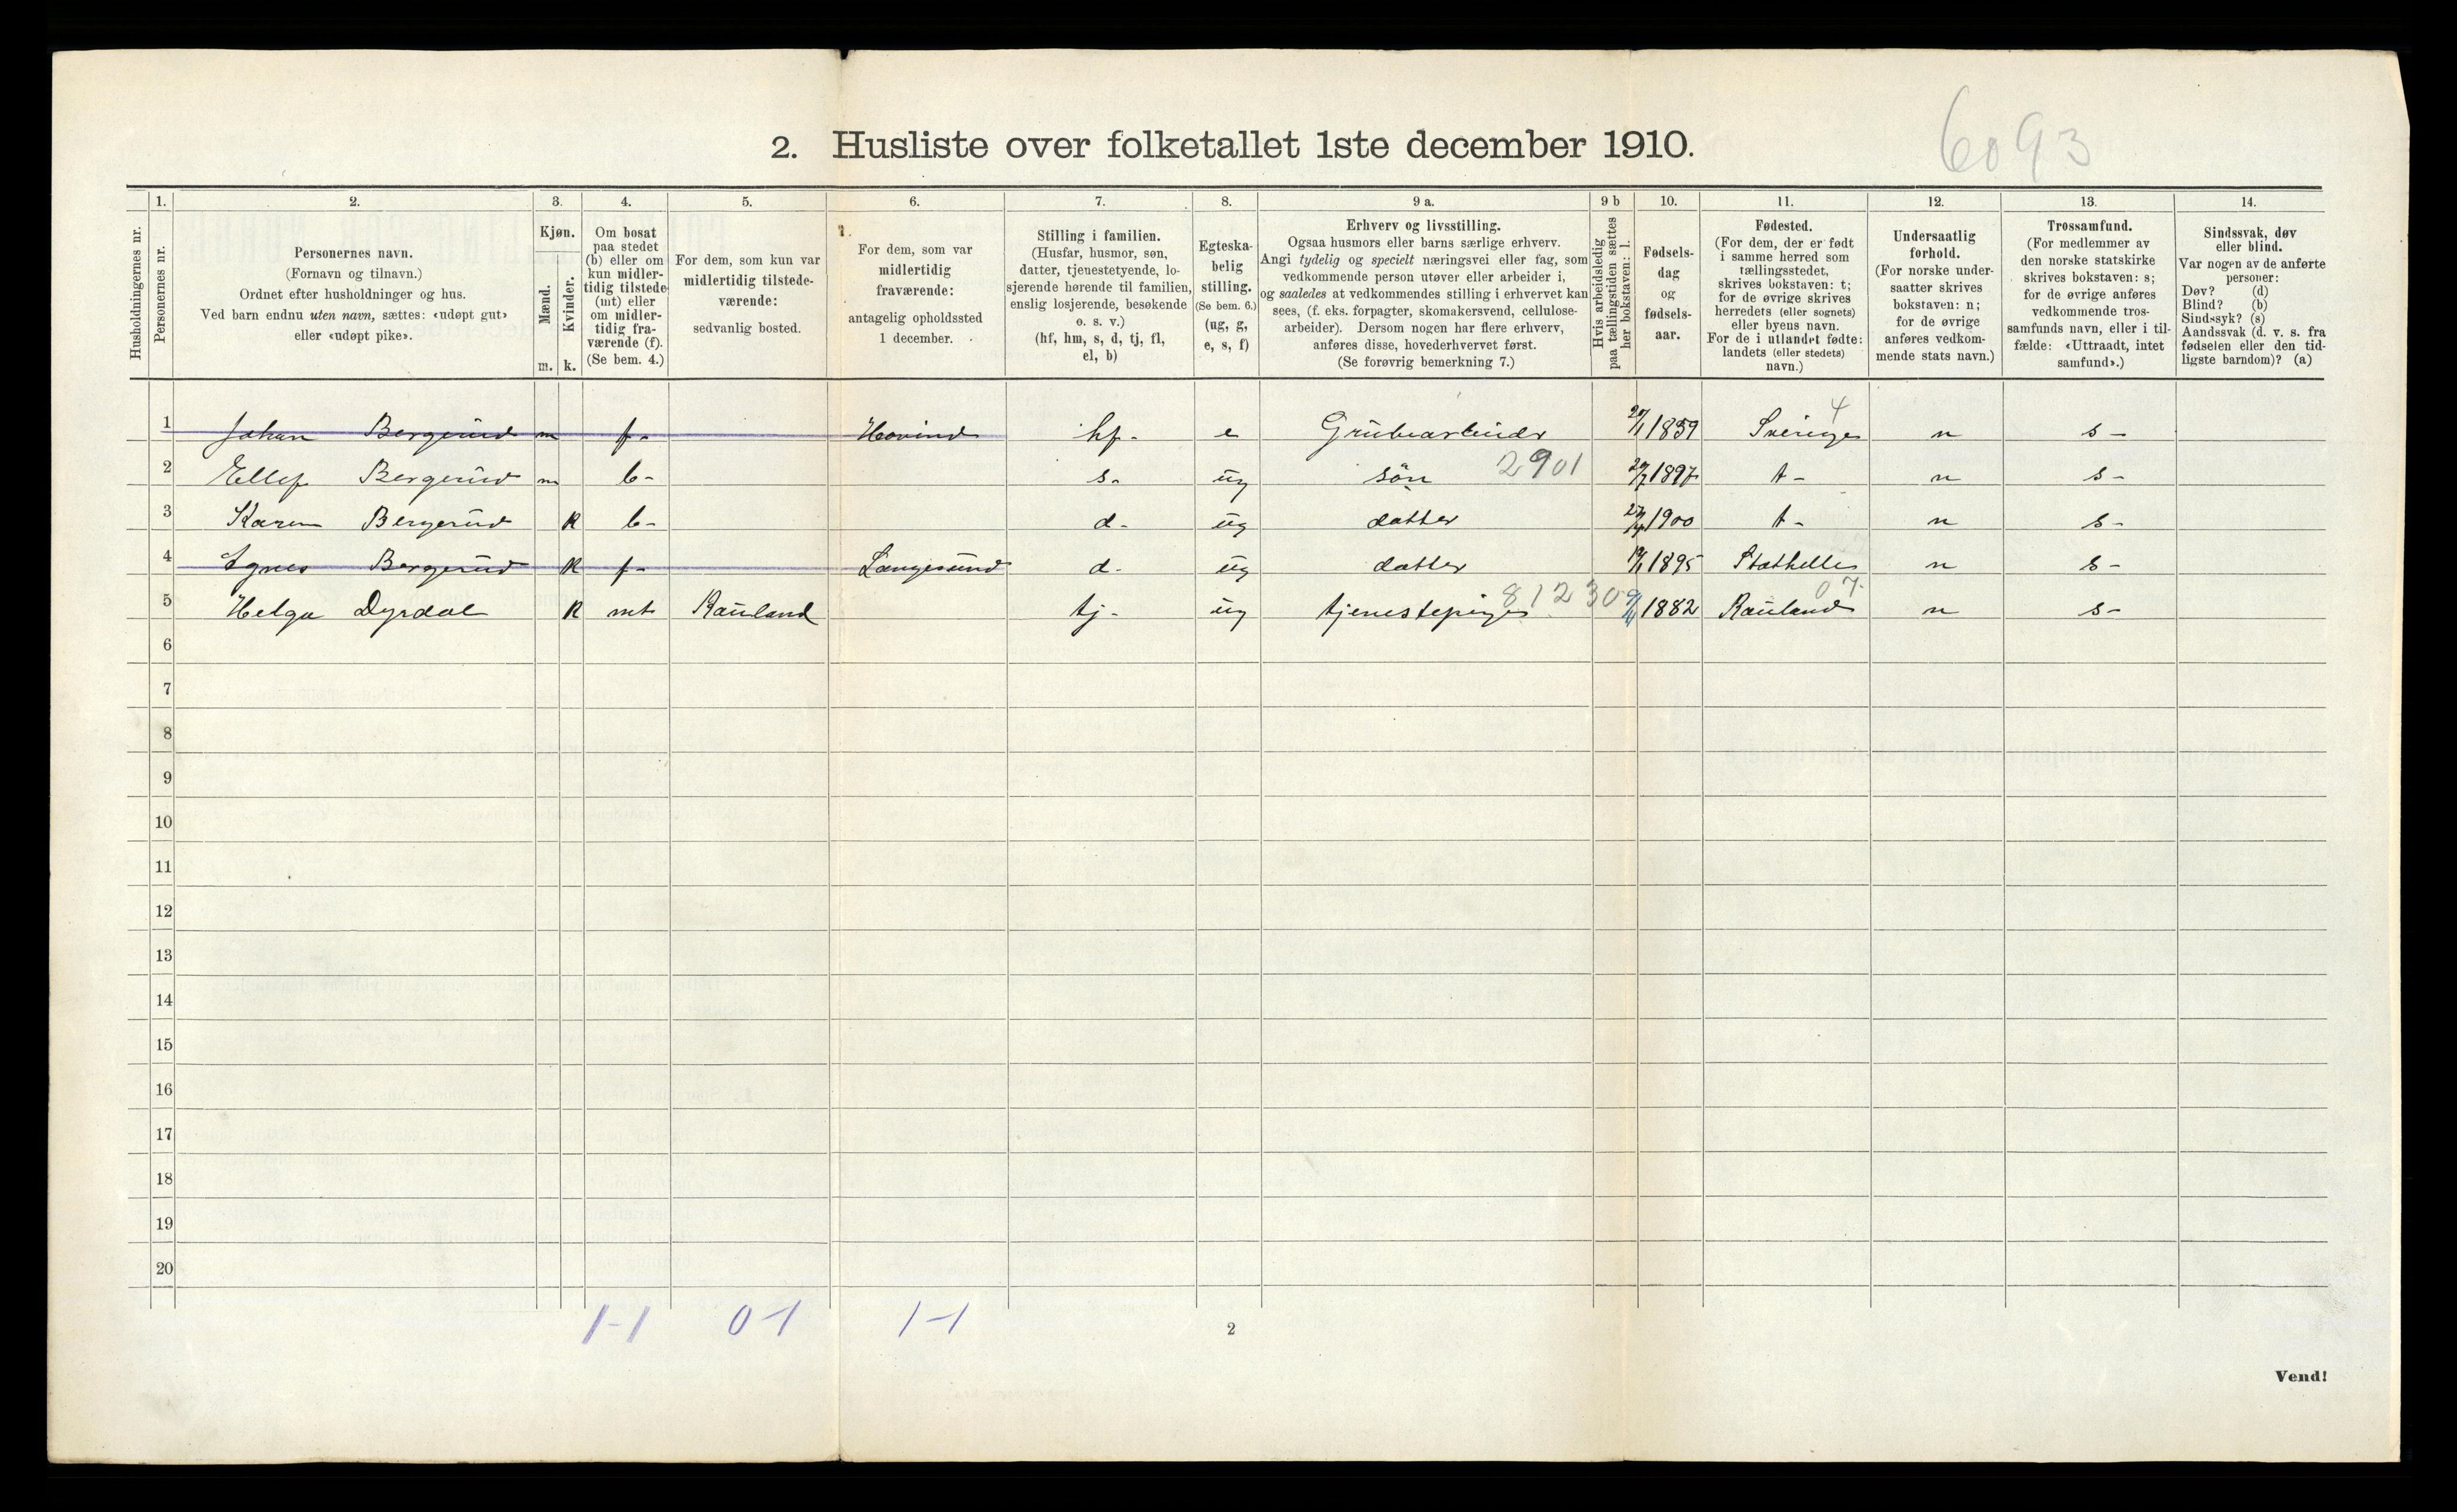 6093
2. Husliste over folketallet 1ste december 1910.
Husholdningernes nr.
1.
Personernes nr.
2.
Personernes navn.
(Fornavn og tilnavn.)
Ordnet efter husholdninger og hus.
Ved barn endnu uten navn, sættes: «udøpt gut»
eller «udøpt pike».
3.
Kjøn.
Mænd.
m.
Kvinder.
k.
4.
Om bosat
paa stedet
(b) eller om
kun midler-
tidig tilstede
(mt) eller
om midler-
tidig fra-
værende (f).
(Se bem. 4.)
5.
For dem, som kun var
midlertidig tilstede-
værende:
sedvanlig bosted.
6.
For dem, som var
midlertidig
fraværende:
antagelig opholdssted
1 december.
7.
Stilling i familien.
(Husfar, husmor, søn,
datter, tjenestetyende, lo-
sjerende hørende til familien,
enslig losjerende, besøkende
o. s. v.)
(hf, hm, s, d, tj, fl,
el, b)
8.
Egteska-
belig
stilling.
(Se bem. 6.)
(ug, g,
e, s, f)
9 a.
Erhverv og livsstilling.
Ogsaa husmors eller barns særlige erhverv.
Angi tydelig og specielt næringsvei eller fag, som
vedkommende person utøver eller arbeider i,
og saaledes at vedkommendes stilling i erhvervet kan
sees, (f. eks. forpagter, skomakersvend, cellulose-
arbeider). Dersom nogen har flere erhverv,
anføres disse, hovederhvervet først.
(Se forøvrig bemerkning 7.)
9 b
Hvis arbeidsledig
paa tællingstiden sættes
her bokstaven: l.
10.
Fødsels-
dag
og
fødsels-
aar.
11.
Fødested.
(For dem, der er født
i samme herred som
tællingsstedet,
skrives bokstaven: t;
for de øvrige skrives
herredets (eller sognets)
eller byens navn.
For de i utlandet fødte:
landets (eller stedets)
navn.)
12.
Undersaatlig
forhold.
(For norske under-
saatter skrives
bokstaven: n;
for de øvrige
anføres vedkom-
mende stats navn.)
13.
Trossamfund.
(For medlemmer av
den norske statskirke
skrives bokstaven: s;
for de øvrige anføres
vedkommende tros-
samfunds navn, eller i til-
fælde: «Uttraadt, intet
samfund».)
14.
Sindssvak, døv
eller blind.
Var nogen av de anførte
personer:
Døv? (d)
Blind? (b)
Sindssyk? (s)
Aandssvak (d. v. s. fra
fødselen eller den tid-
ligste barndom)? (a)
1 Johan Bergerud m f- Hovind hf- e Grubearbeider 1859 Sverige 4 n s-
2 Ellef Bergerud m b- s- ug søn 2901 1897 t- n s-
3 Karen Bergerud k b- d- ug datter 1900 t- n s-
4 Agnes Bergerud k f- Langesund d- ug datter 1895 Stathelle n s-
5 Helga Dyrdal k mt Rauland tj- ug tjenestepige 81230 1882 Rauland 07 n s-
6
7
8
9
10
11
12
13
14
15
16
17
18
19
20
1-1 0-1 1-1
2
Vend!